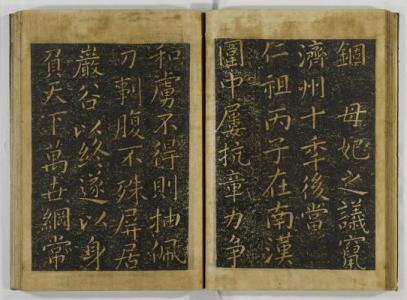 錮 母妃之議竄
濟州十秊後當
仁祖丙子在南漢
圍中屢抗章力争
和虜不得則抽佩
刀剚腹不殊屏居
巖谷以終遂以身
負天下萬世綱常